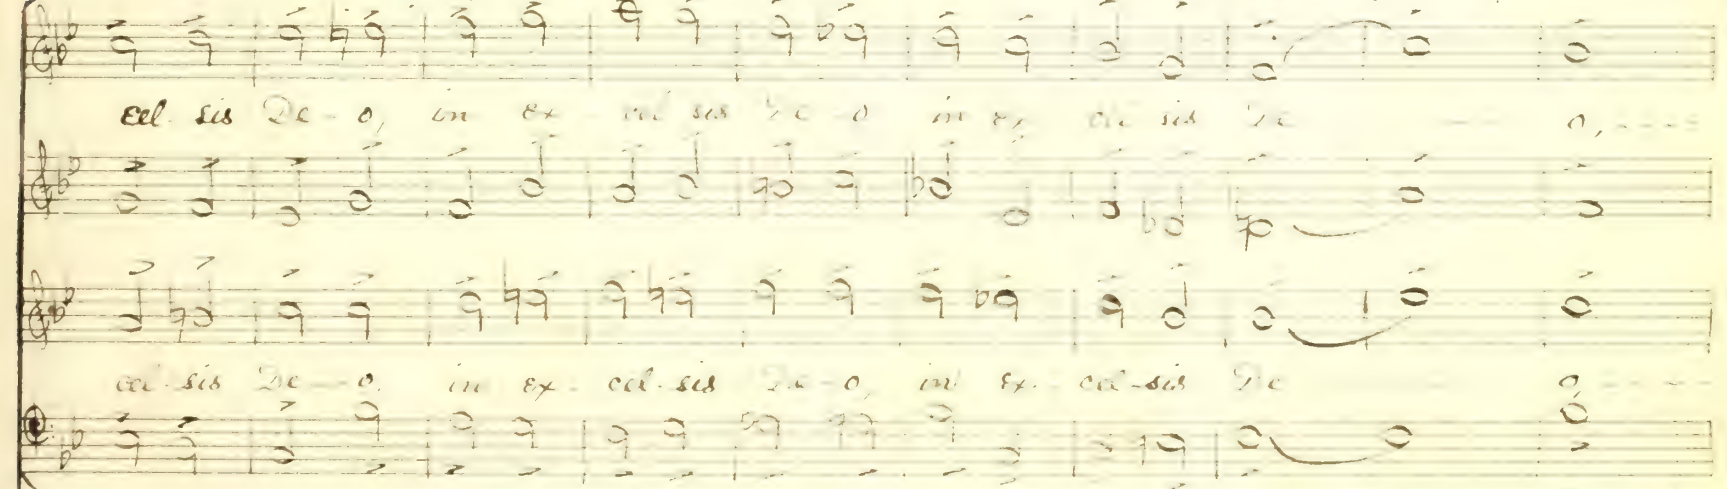 cel - sis De - o, in ex - cel sis De - o in ex cel sis De o, - - - -
cel - sis De - o, in ex - cel - sis De - o, in ex - cel - sis De o, - - -